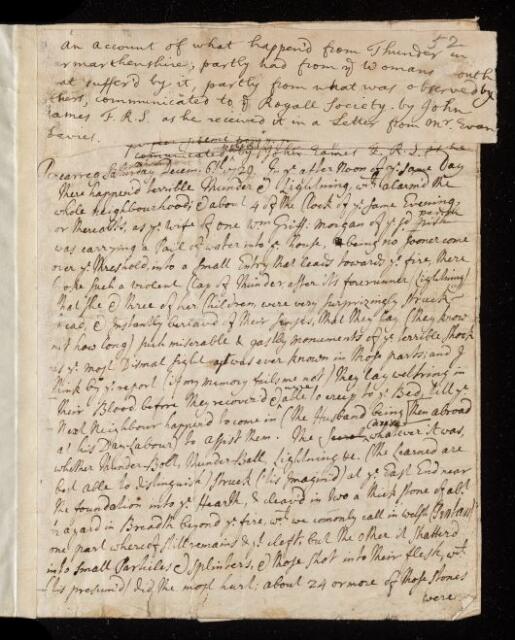 52
An account of what happen'd from Thunder in
armarthenshire; partly had from ye Womans outh
at suffer'd by it, partly from what was observed by
thers, communicated to ye Royall Society by John
ames F.R.S. as he received it in a Letter from Mr. Evan
avies.
communicated by John Eames F.R.S. as he
Saturday Decem. 6th 1729. In ye after Noon of ye same Day
There happen'd terrible Thunder & Lightning, wch alarm'd the
whole Neighbourhood; & about 4 of the Clock of ye same Evening,
or thereabts, as ye Wife of one Wm Griff: Morgan of ye sd parish
was carrying a Pail of water into ye House, being no sooner come
over ye threshold, into a small Entry that leads towards ye fire, there
broke such a violent Clap of Thunder after its forerunner (Lightning)
that she & three of her Children, were very surprizingly struck
dead, & instantly bereav'd of their senses, that they lay (they know
not how long) such miserable & gastly monuments of ye terrible shock
as ye most Dismal sight was ever known in those parts; and I
think by ye report (if my memory fails me not) they lay weltring in
their Blood before they recover'd able to creep to ye Bed, till ye
Next Neighbour happend to come in (the Husband being then abroad
at his Day-Labour) to assist them. The cause whatever it was,
whether Thunder-Bolt, Thunder Ball, Lightning &c. (the Learned are
best able to distinguish) struck (tis imagin'd) at ye East End near
the foundation into ye Hearth, & cleav'd in two a thick stone of abt
a yard in Breadth beyond ye fire, wch we comonly call in welsh
one part whereof still remains & is cleft, but the other it shatter'd
into small Particles & splinters, & those shot into their flesh, wch
(tis presum'd) did the most hurt; about 24 or more of those stones
were